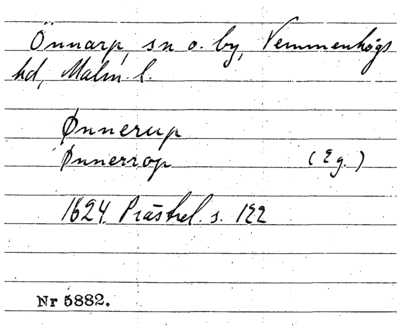 Önnarp, sn o. by, Vemmenhögs
hd, Malm. l.
Ønnerup
Ønnerrop (2 g.)
1624 Prästrel. s. 122
Nr 5882.